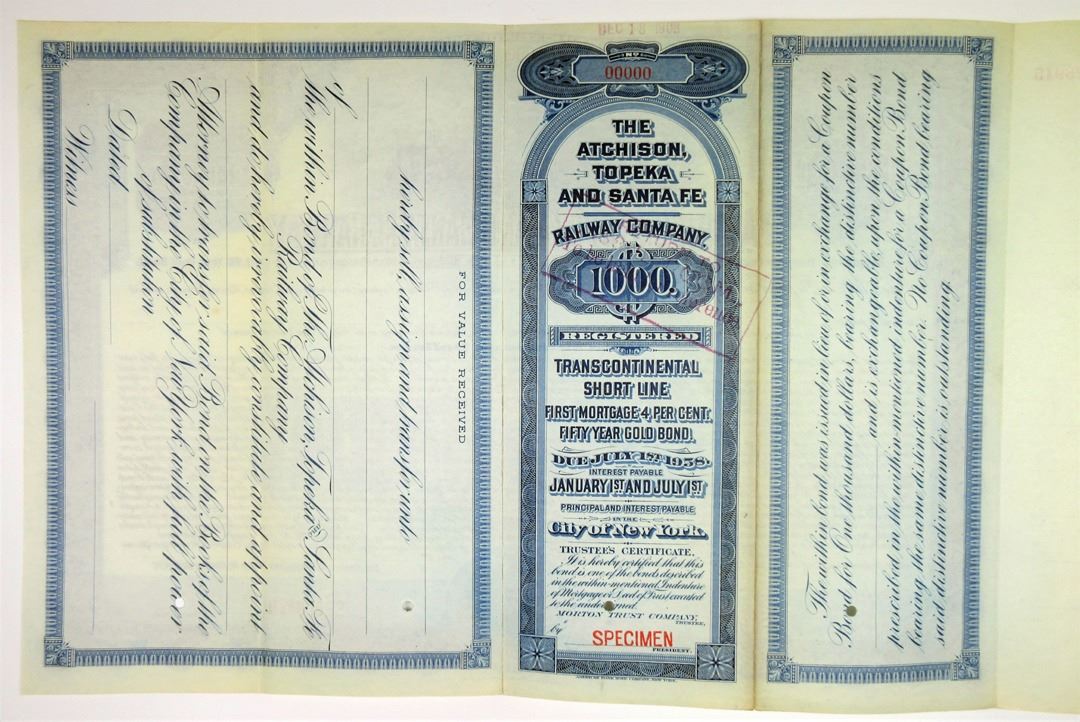 FOR VALUE RECEIVED
hereby sell, assign and transfer unto
of
the within Bond of The Atchison, Topeka and Santa Fe
Railway Company
and do hereby irrevocably constitute and appoint
Attorney to transfer said Bond on the Books of the
Company in the City of New York with full power
of substitution
Dated
Witness
DEC 18 1909
No.
00000
THE
ATCHISON,
TOPEKA
AND SANTA FE
RAILWAY COMPANY.
$1000.
REGISTERED
TRANSCONTINENTAL
SHORT LINE
FIRST MORTGAGE 4 PER CENT.
FIFTY YEAR GOLD BOND.
DUE JULY 1ST 1958.
INTEREST PAYABLE
JANUARY 1ST AND JULY 1ST
PRINCIPAL AND INTEREST PAYABLE
IN THE
City of New York.
TRUSTEE'S CERTIFICATE.
It is hereby certified that this
bond is one of the bonds described
in the within-mentioned Indenture
of Mortgage or Deed of Trust executed
to the undersigned.
MORTON TRUST COMPANY,
TRUSTEE,
by
SPECIMEN
PRESIDENT.
AMERICAN BANK NOTE COMPANY, NEW YORK.
The within bond was issued in lieu of or in exchange for a Coupon
Bond for One thousand dollars, bearing the distinctive number
and is exchangeable, upon the conditions
prescribed in the within mentioned indenture for a Coupon Bond
bearing the same distinctive number. No Coupon Bond bearing
said distinctive number is outstanding.